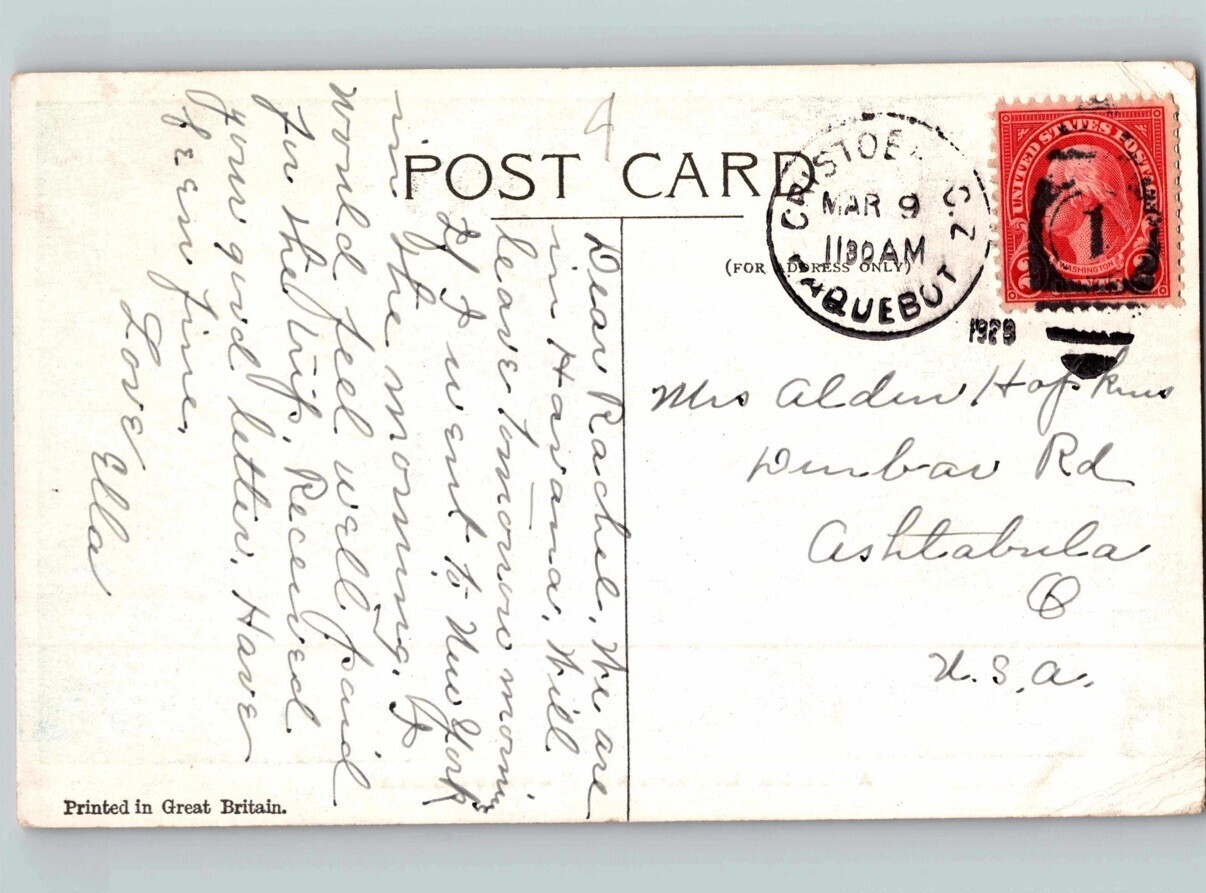 POST CARD
(FOR ADDRESS ONLY)
CRISTOBAL C.Z.
MAR 9
1130AM
PAQUEBOT
1928
UNITED STATES POSTAGE
WASHINGTON
2 2
1
Dear Rachel, We are
in Havana, Will
leave tomorrow morning
If I went to New York
in the morning. I
would feel well paid
for the trip. Received
your good letter. Have
been fine.
Love
Ella
Mrs Alden Hopkins
Dunbar Rd
Ashtabula
O
U.S.A.
Printed in Great Britain.